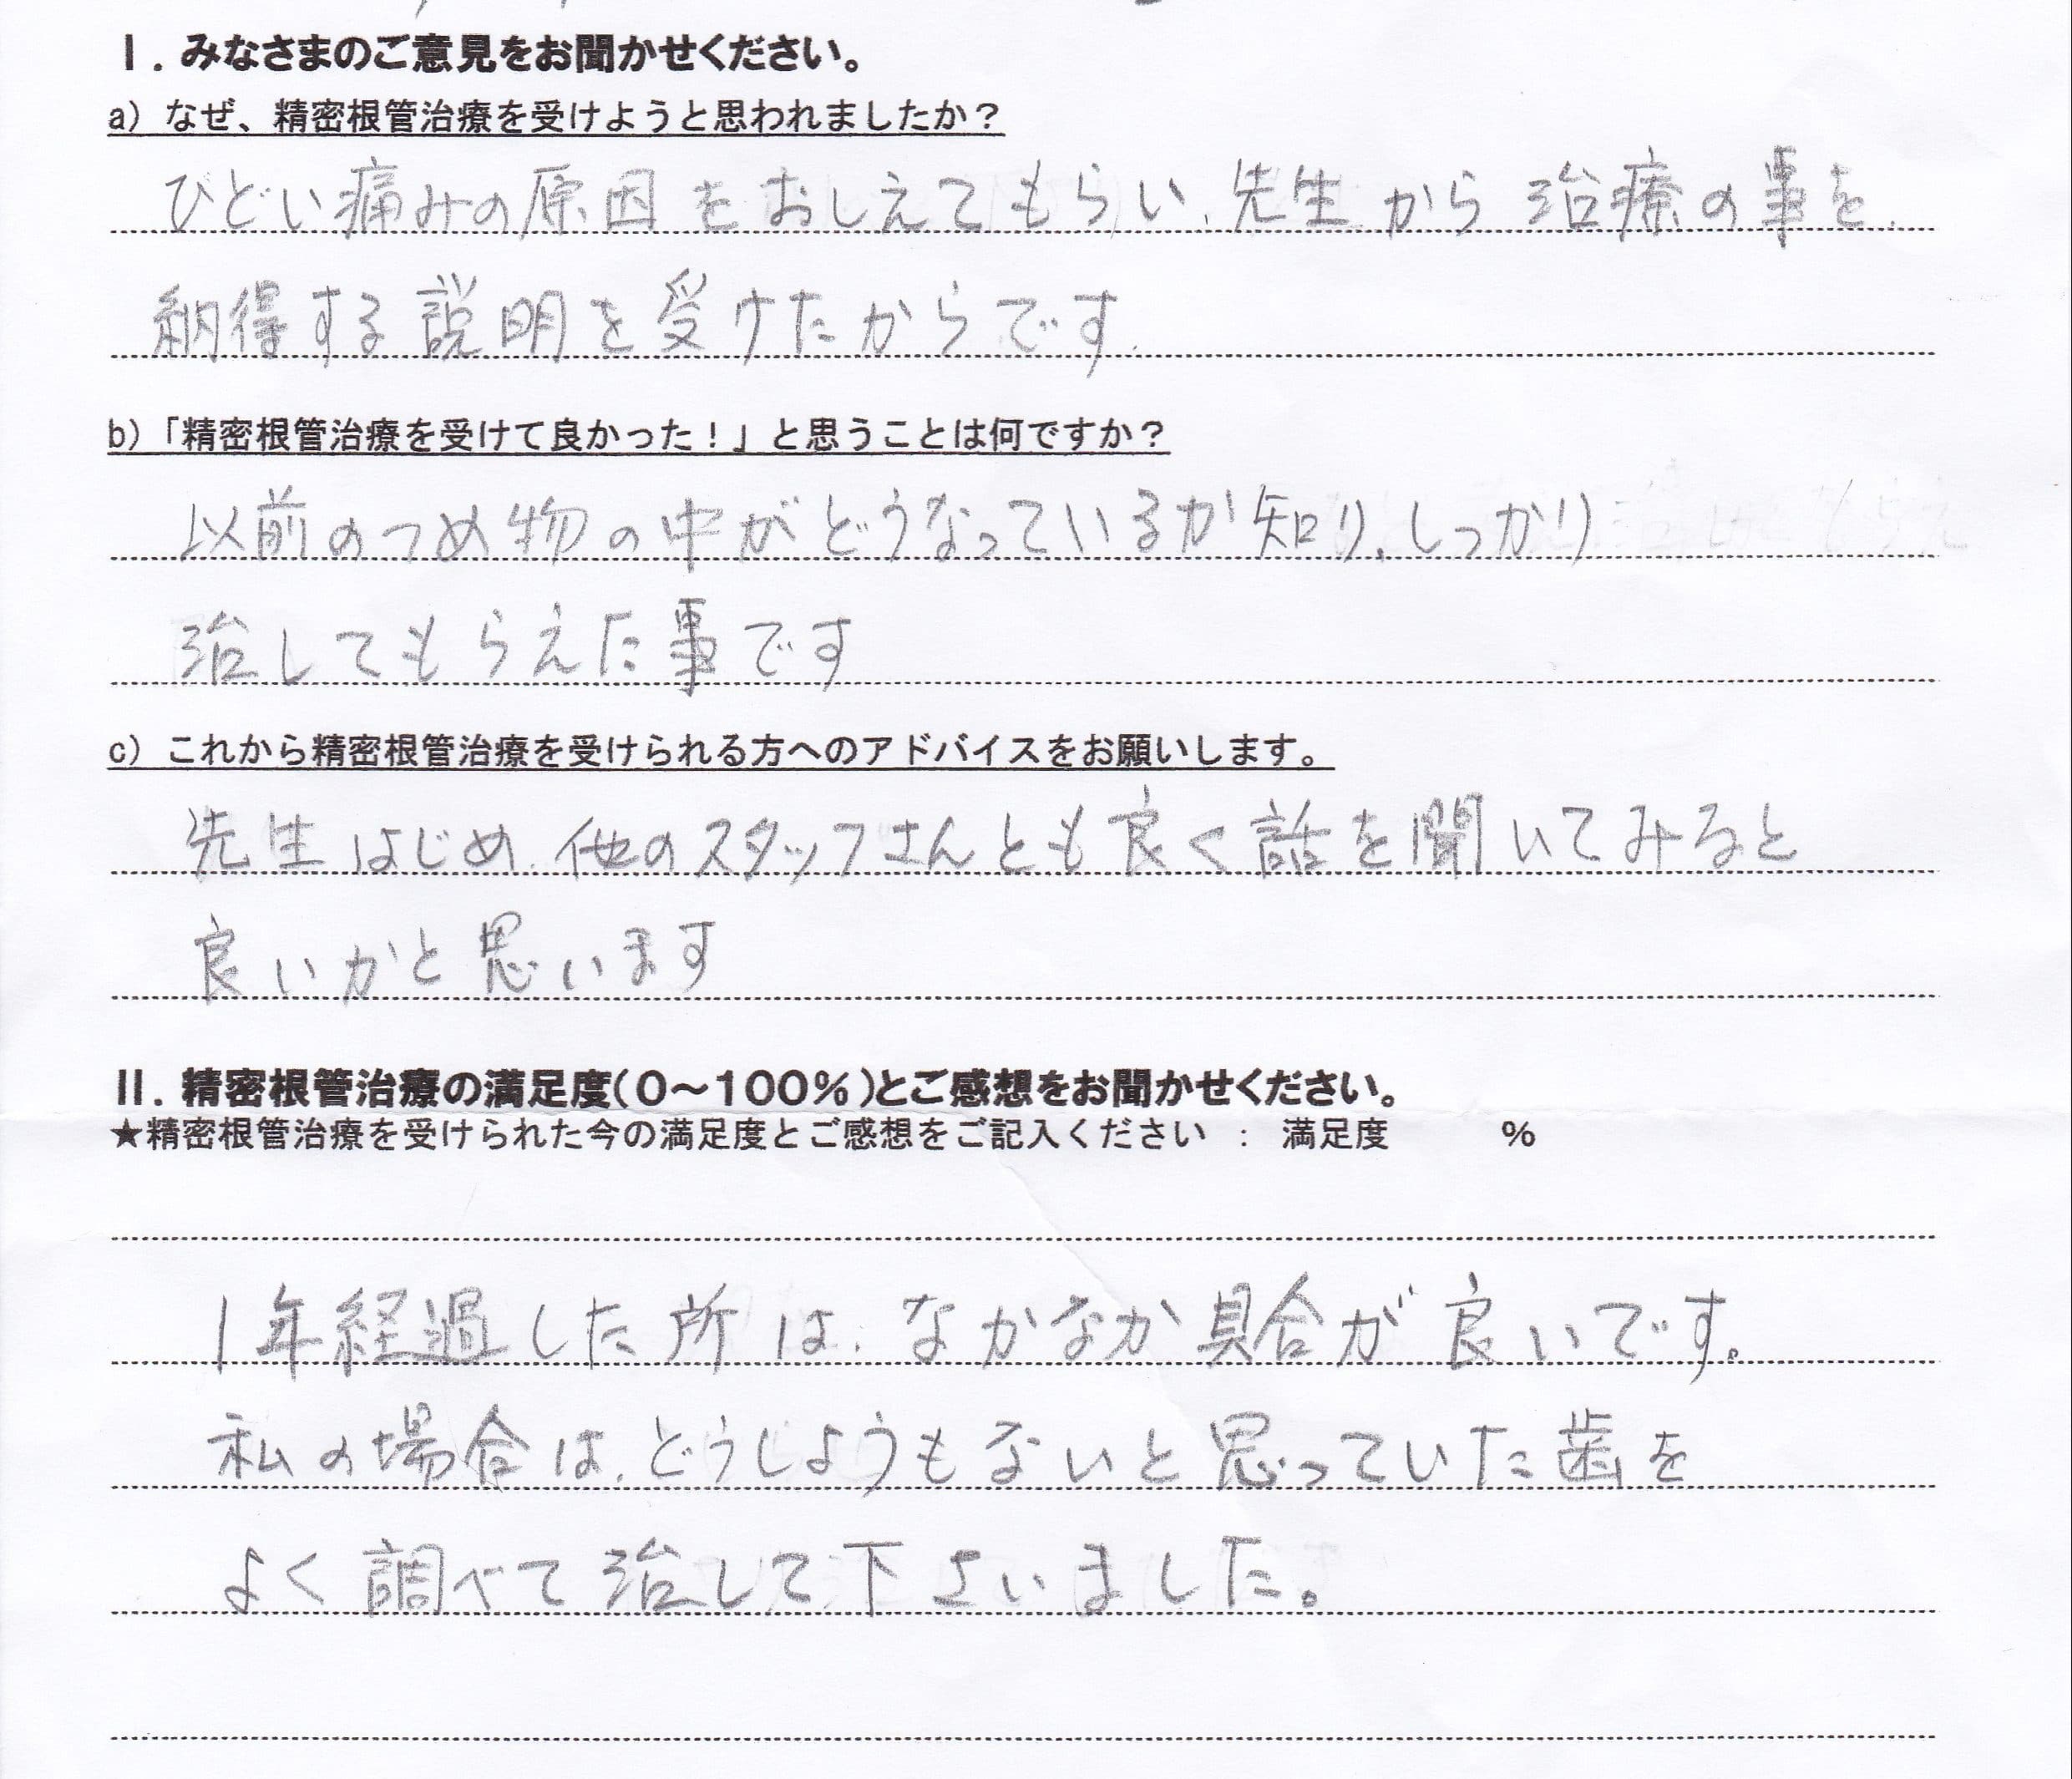 Ⅰ. みなさまのご意見をお聞かせください。
a) なぜ、精密根管治療を受けようと思われましたか？
ひどい痛みの原因をおしえてもらい、先生から治療の事を
納得する説明を受けたからです.
b)「精密根管治療を受けて良かった！」と思うことは何ですか？
以前のつめ物の中がどうなっているか知り、しっかり
治してもらえた事です
c) これから精密根管治療を受けられる方へのアドバイスをお願いします。
先生はじめ、他のスタッフさんとも良く話を聞いてみると
良いかと思います
Ⅱ. 精密根管治療の満足度(0～100%)とご感想をお聞かせください。
★精密根管治療を受けられた今の満足度とご感想をご記入ください ： 満足度 %
1年経過した所は、なかなか具合が良いです。
私の場合は、どうしようもないと思っていた歯を
よく調べて治して下さいました。